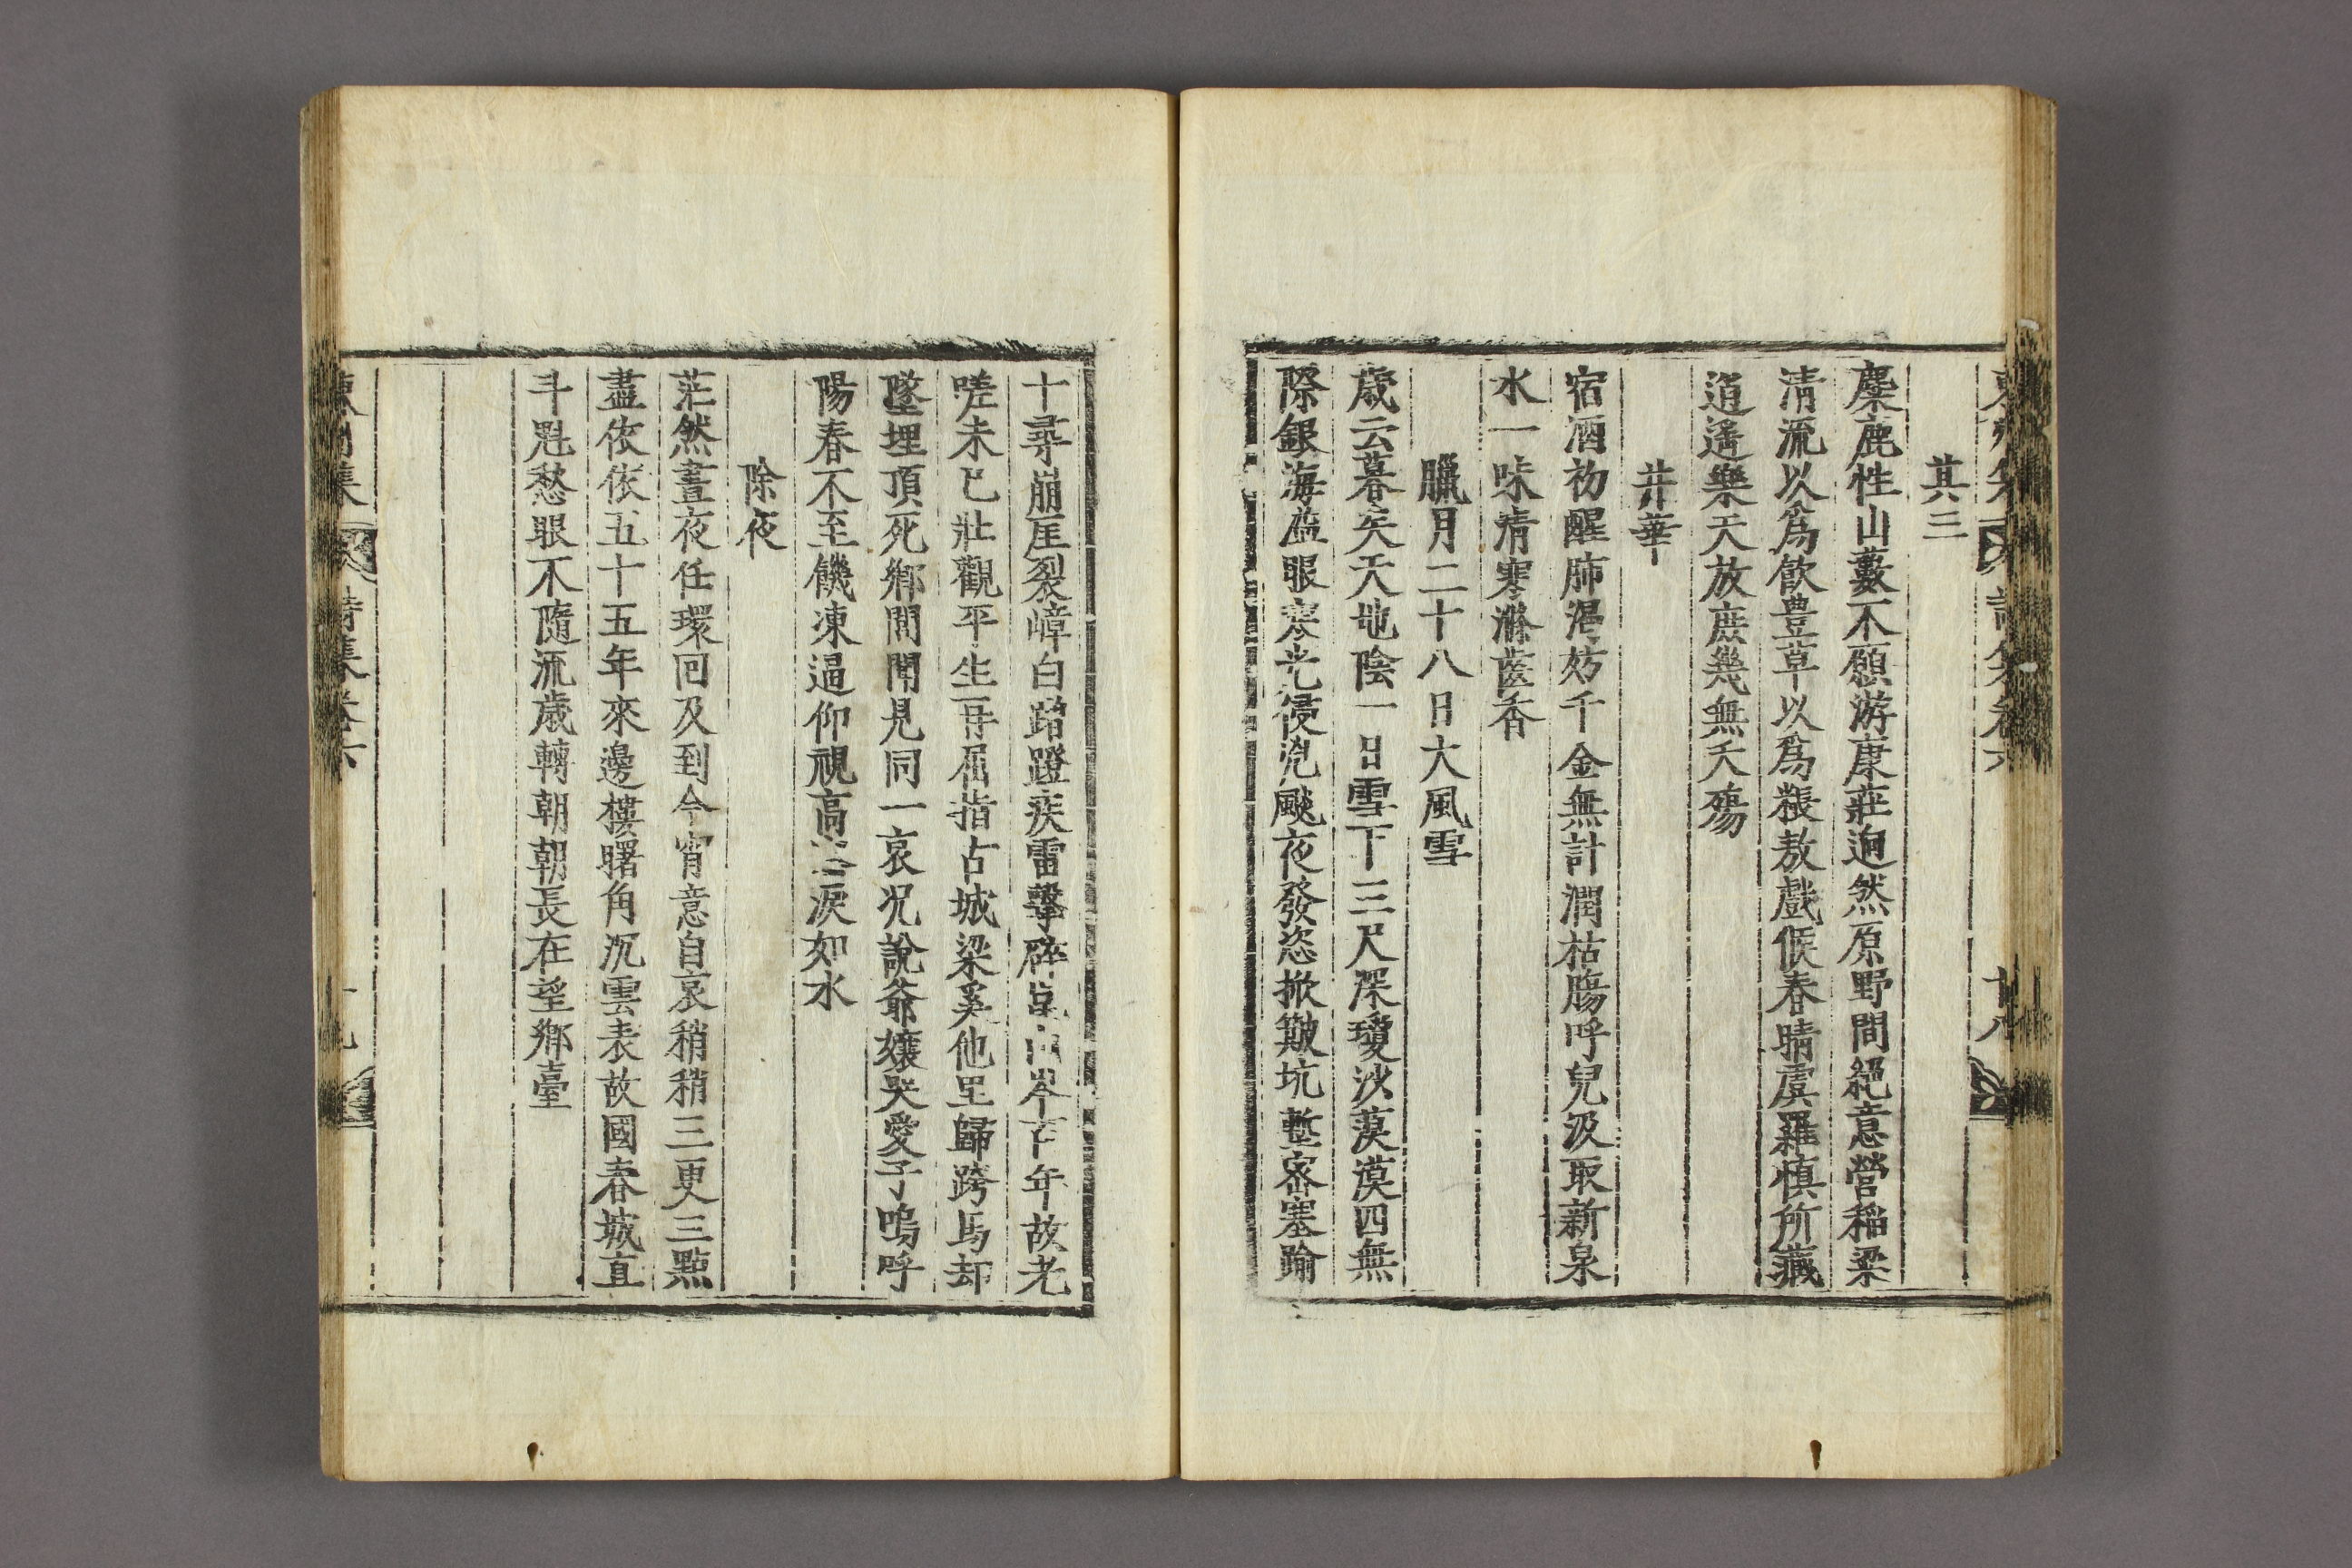 其三
麋鹿性山藪不願游康莊逈然原野間絕意營稲粱
清流以爲飮豊草以爲粻敖戲候春晴虞羅愼所藏
逍遙樂天放庶幾無夭殤
井華
宿酒初醒肺渴妨千金無計潤枯膓呼兒汲取新泉
水一味淸寒滌齒香
臘月二十八日大風雪
歲云暮矣天地陰一日雪下三尺深瓊沙漠漠四無
際銀海溢眼寒光侵兇颷夜發恣掀簸坑塹密塞踰
十尋崩厓裂嶂白踏蹬疾雷擊碎崑山岑百年故老
嗟未已壯觀平生一毋屈指占城梁奚他里歸跨馬却
墜埋頂死鄕閭聞見同一哀況說爺孃哭愛子嗚呼
陽春不至饑凍逼仰視高淚如水
除夜
茫然晝夜任環回及到今宵意自哀稍稍三更三點
盡依依五十五年來邊樓曙角沉雲表故國春城直
斗魁愁眼不隨流歲轉朝朝長在望鄕臺
集 詩集卷六